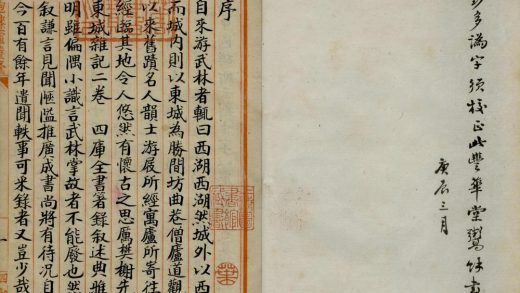 多字須校正此豐華堂書
庚辰三月
序
自來游武林者輒曰西湖西湖然城外以西
而城內則以東城為勝間坊曲巷僧廬道觀
以來舊蹟名人韻士游屐所經寓廬所寄往
經臨其地令人悠然有懷古之思厲樊榭先
東城雜記二卷 四庫全書著錄叙述典雅
明雖偏隅小識言武林掌故者不能廢也然
叙謙言見聞陋隘推廣成書尚將有待況自
今百有餘年遺聞軼事可采錄者又豈少哉
一